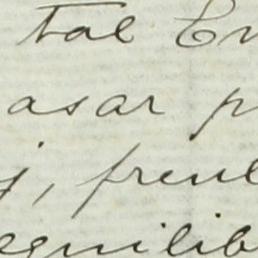 tal En
asar p
j, frent
equilib